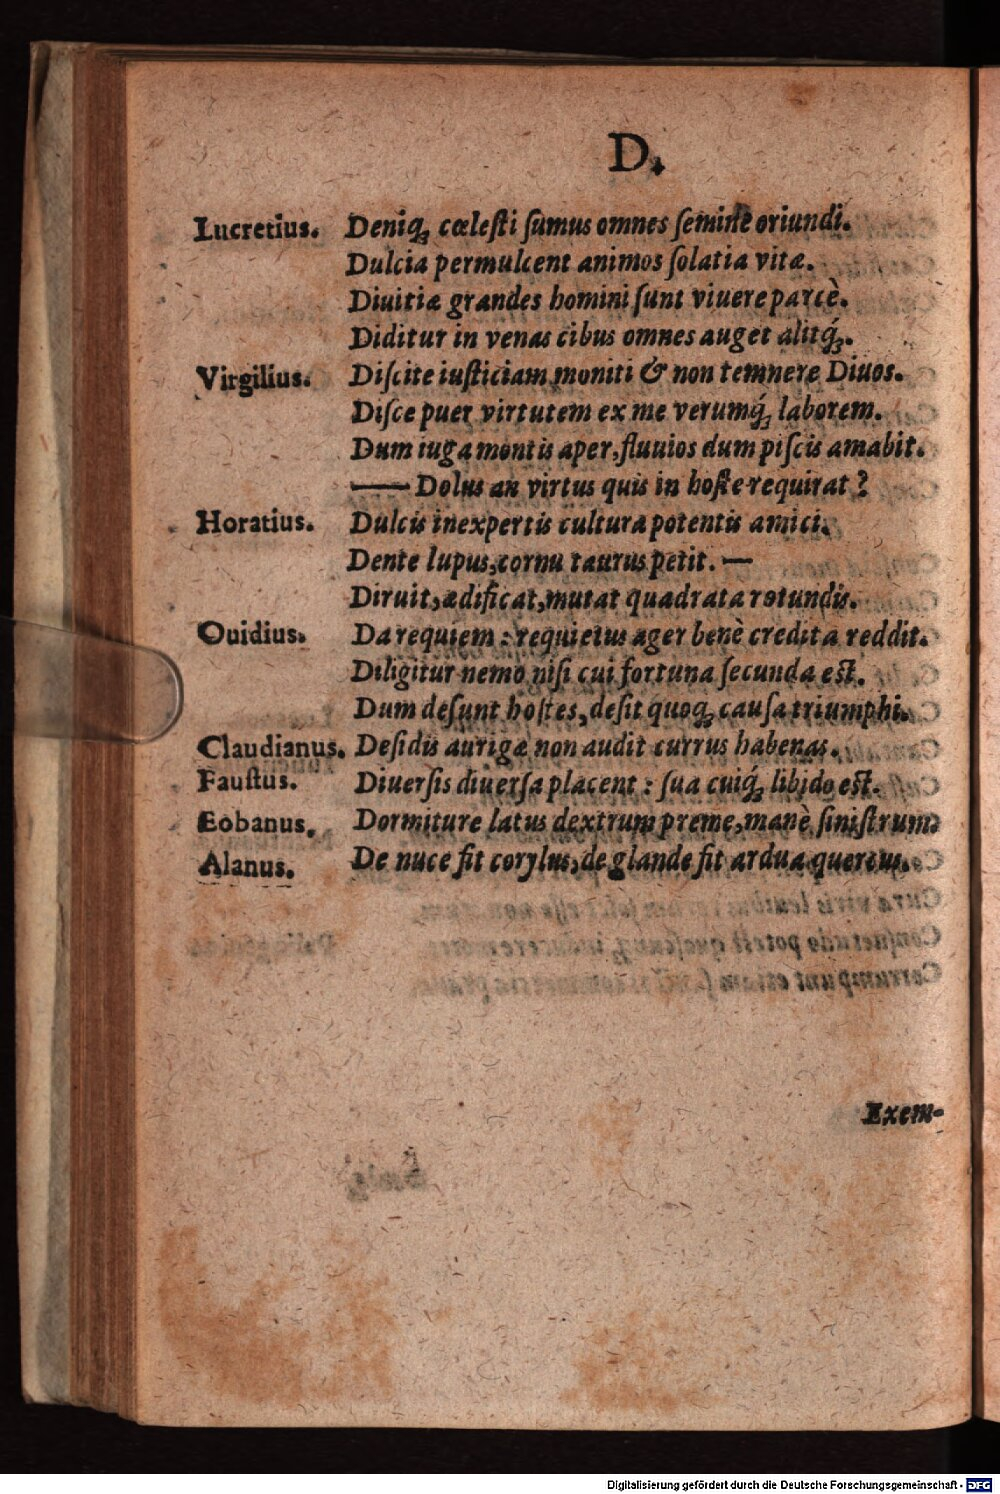 D.
Lucretius. Deniq; cœlesti sumus omnes semine oriundi.
Dulcia permulcent animos solatia vitæ.
Diuitiæ grandes homini sunt viuere parcè.
Diditur in venas cibus omnes auget alitq́;.
Virgilius. Discite iusticiam moniti & non temnere Diuos.
Disce puer virtutem ex me verumq́; laborem.
Dum iuga montis aper, fluuios dum piscis amabit.
—— Dolus an virtus quis in hoste requirat?
Horatius. Dulcis inexpertis cultura potentis amici.
Dente lupus, cornu taurus petit. —
Diruit, ædificat, mutat quadrata rotundis.
Ouidius. Da requiem: requietus ager benè credita reddit.
Diligitur nemo nisi cui fortuna secunda est.
Dum desunt hostes, desit quoq; causa triumphi.
Claudianus. Desidis aurigæ non audit currus habenas.
Faustus. Diuersis diuersa placent: sua cuiq́; libido est.
Eobanus. Dormiture latus dextrum preme, manè sinistrum.
Alanus. De nuce fit corylus, de glande fit ardua quercus.
Exem-
Digitalisierung gefördert durch die Deutsche Forschungsgemeinschaft - DFG